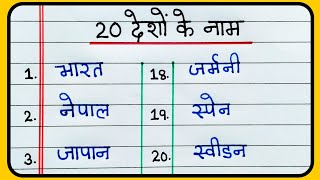 20 देशों के नाम
1. भारत 18. जर्मनी
2. नेपाल 19. स्पेन
3. जापान 20. स्वीडन